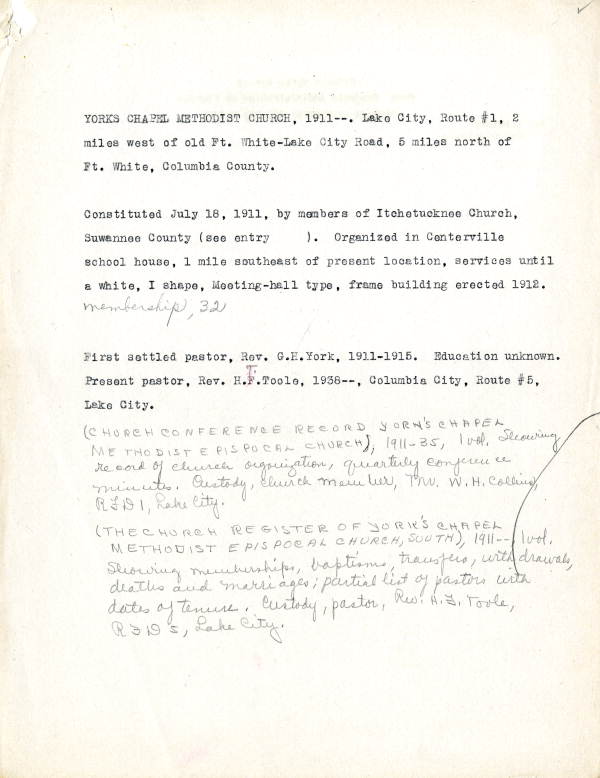 YORKS CHAPEL METHODIST CHURCH, 1911--. Lake City, Route #1, 2
miles west of old Ft. White-Lake City Road, 5 miles north of
Ft. White, Columbia County.
Constituted July 18, 1911, by members of Itchetucknee Church,
Suwannee County (see entry     ). Organized in Centerville
school house, 1 mile southeast of present location, services until
a white, I shape, Meeting-hall type, frame building erected 1912.
membership, 32
First settled pastor, Rev. G.H.York, 1911-1915. Education unknown.
Present pastor, Rev. H.F.Toole, 1938--, Columbia City, Route #5,
Lake City.
(CHURCH CONFERENCE RECORD YORK'S CHAPEL
METHODIST EPISPOCAL CHURCH), 1911-35, 1 vol. Showing
record of church organization, quarterly conference
minutes. Custody, church member, W.H. Collins,
RFD 1, Lake City.
(THE CHURCH REGISTER OF YORK'S CHAPEL
METHODIST EPISPOCAL CHURCH, SOUTH), 1911-- 1 vol.
Showing memberships, baptisms, transfers, withdrawals,
deaths and marriages; partial list of pastors with
dates of tenure. Custody, pastor, Rev. H.F. Toole,
RFD 5, Lake City.